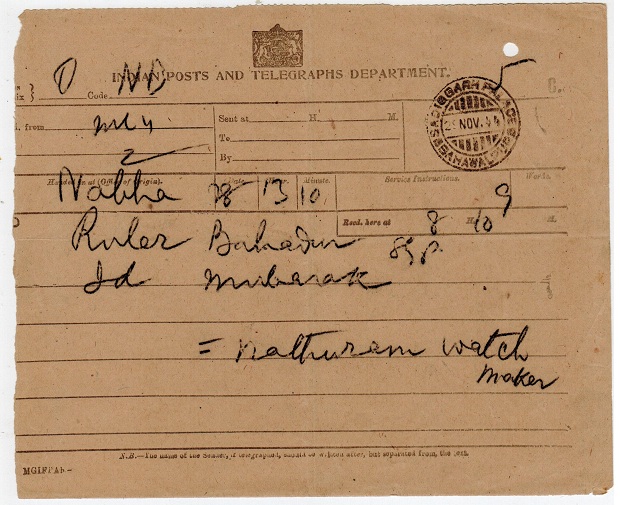 INDIAN POSTS AND TELEGRAPHS DEPARTMENT.
O ND
Code
C.
from
Sent at H. M.
To
By
SADIQGARH PALACE
NOV.
BAHAWALPUR
Handed in at (Office of Origin). Date Hour Minute. Service Instructions. Words.
Nabha 28 13 10 9
Recd. here at 8 H. 10 M.
Ruler Bahadur Bgp
Id Mubarak
= Nathuram watch
maker
N.B.—The name of the Sender, if telegraphed, should be written after, but separated from, the text.